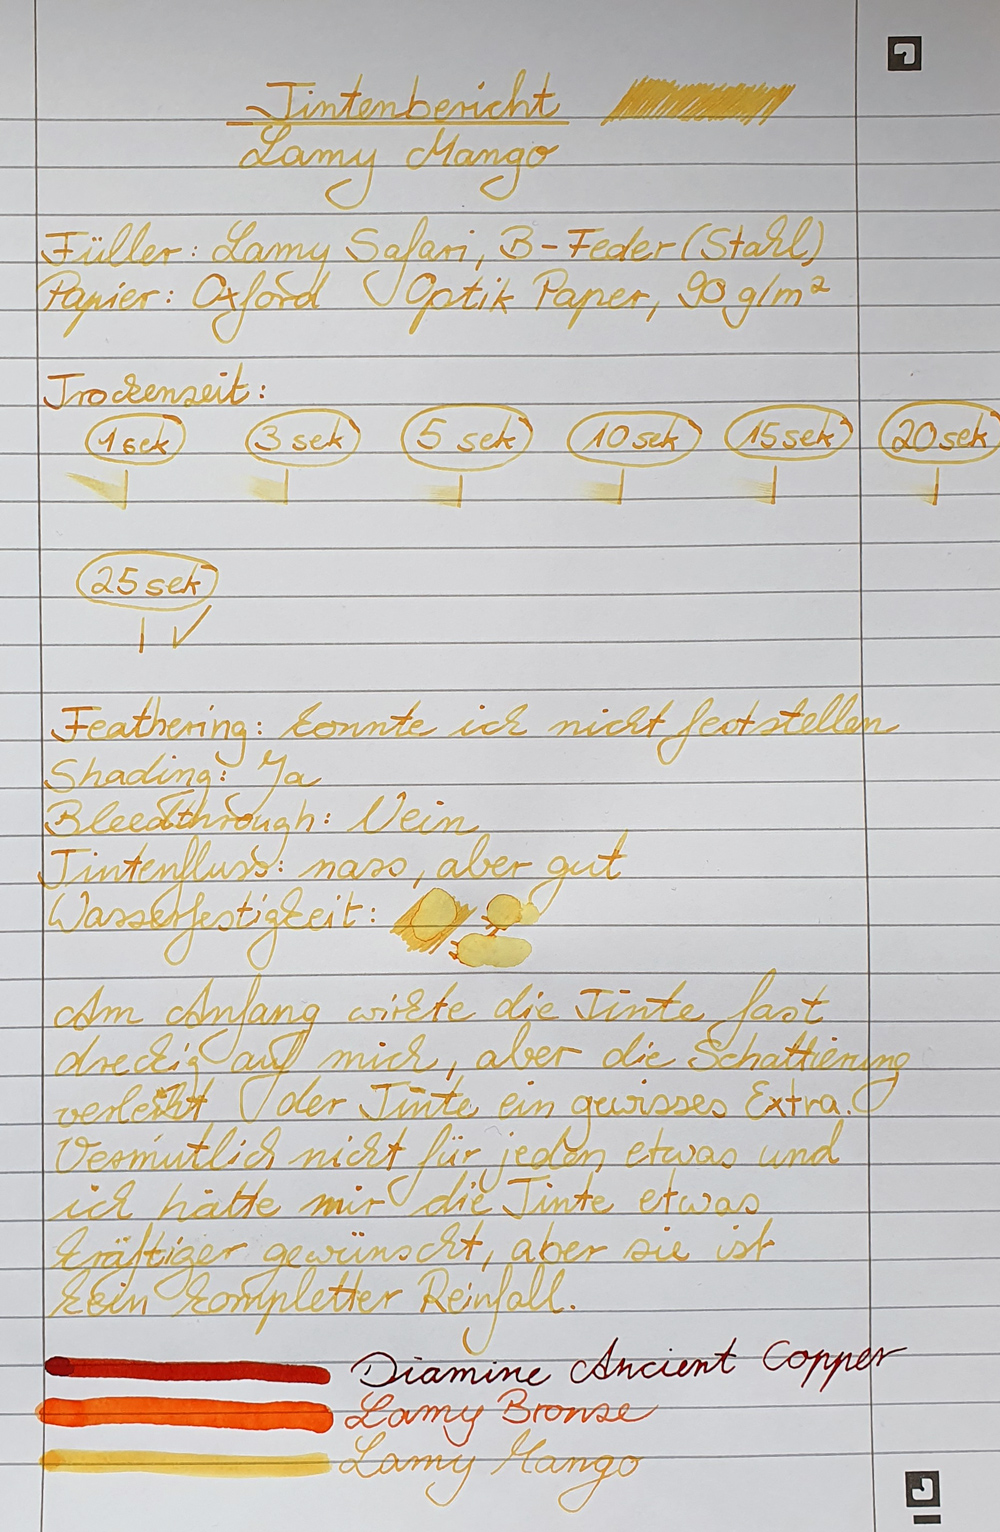 Tintenbericht
Lamy Mango
Füller: Lamy Safari, B-Feder (Stahl)
Papier: Oxford Optik Paper, 90 g/m²
Trockenzeit:
1 sek 3 sek 5 sek 10 sek 15 sek 20 sek
25 sek
Feathering: konnte ich nicht feststellen
Shading: Ja
Bleedthrough: Nein
Tintenfluss: nass, aber gut
Wasserfestigkeit:
Am Anfang wirkte die Tinte fast
dreckig auf mich, aber die Schattierung
verleiht der Tinte ein gewisses Extra.
Vermutlich nicht für jeden etwas und
ich hätte mir die Tinte etwas
kräftiger gewünscht, aber sie ist
kein kompletter Reinfall.
Diamine Ancient Copper
Lamy Bronze
Lamy Mango